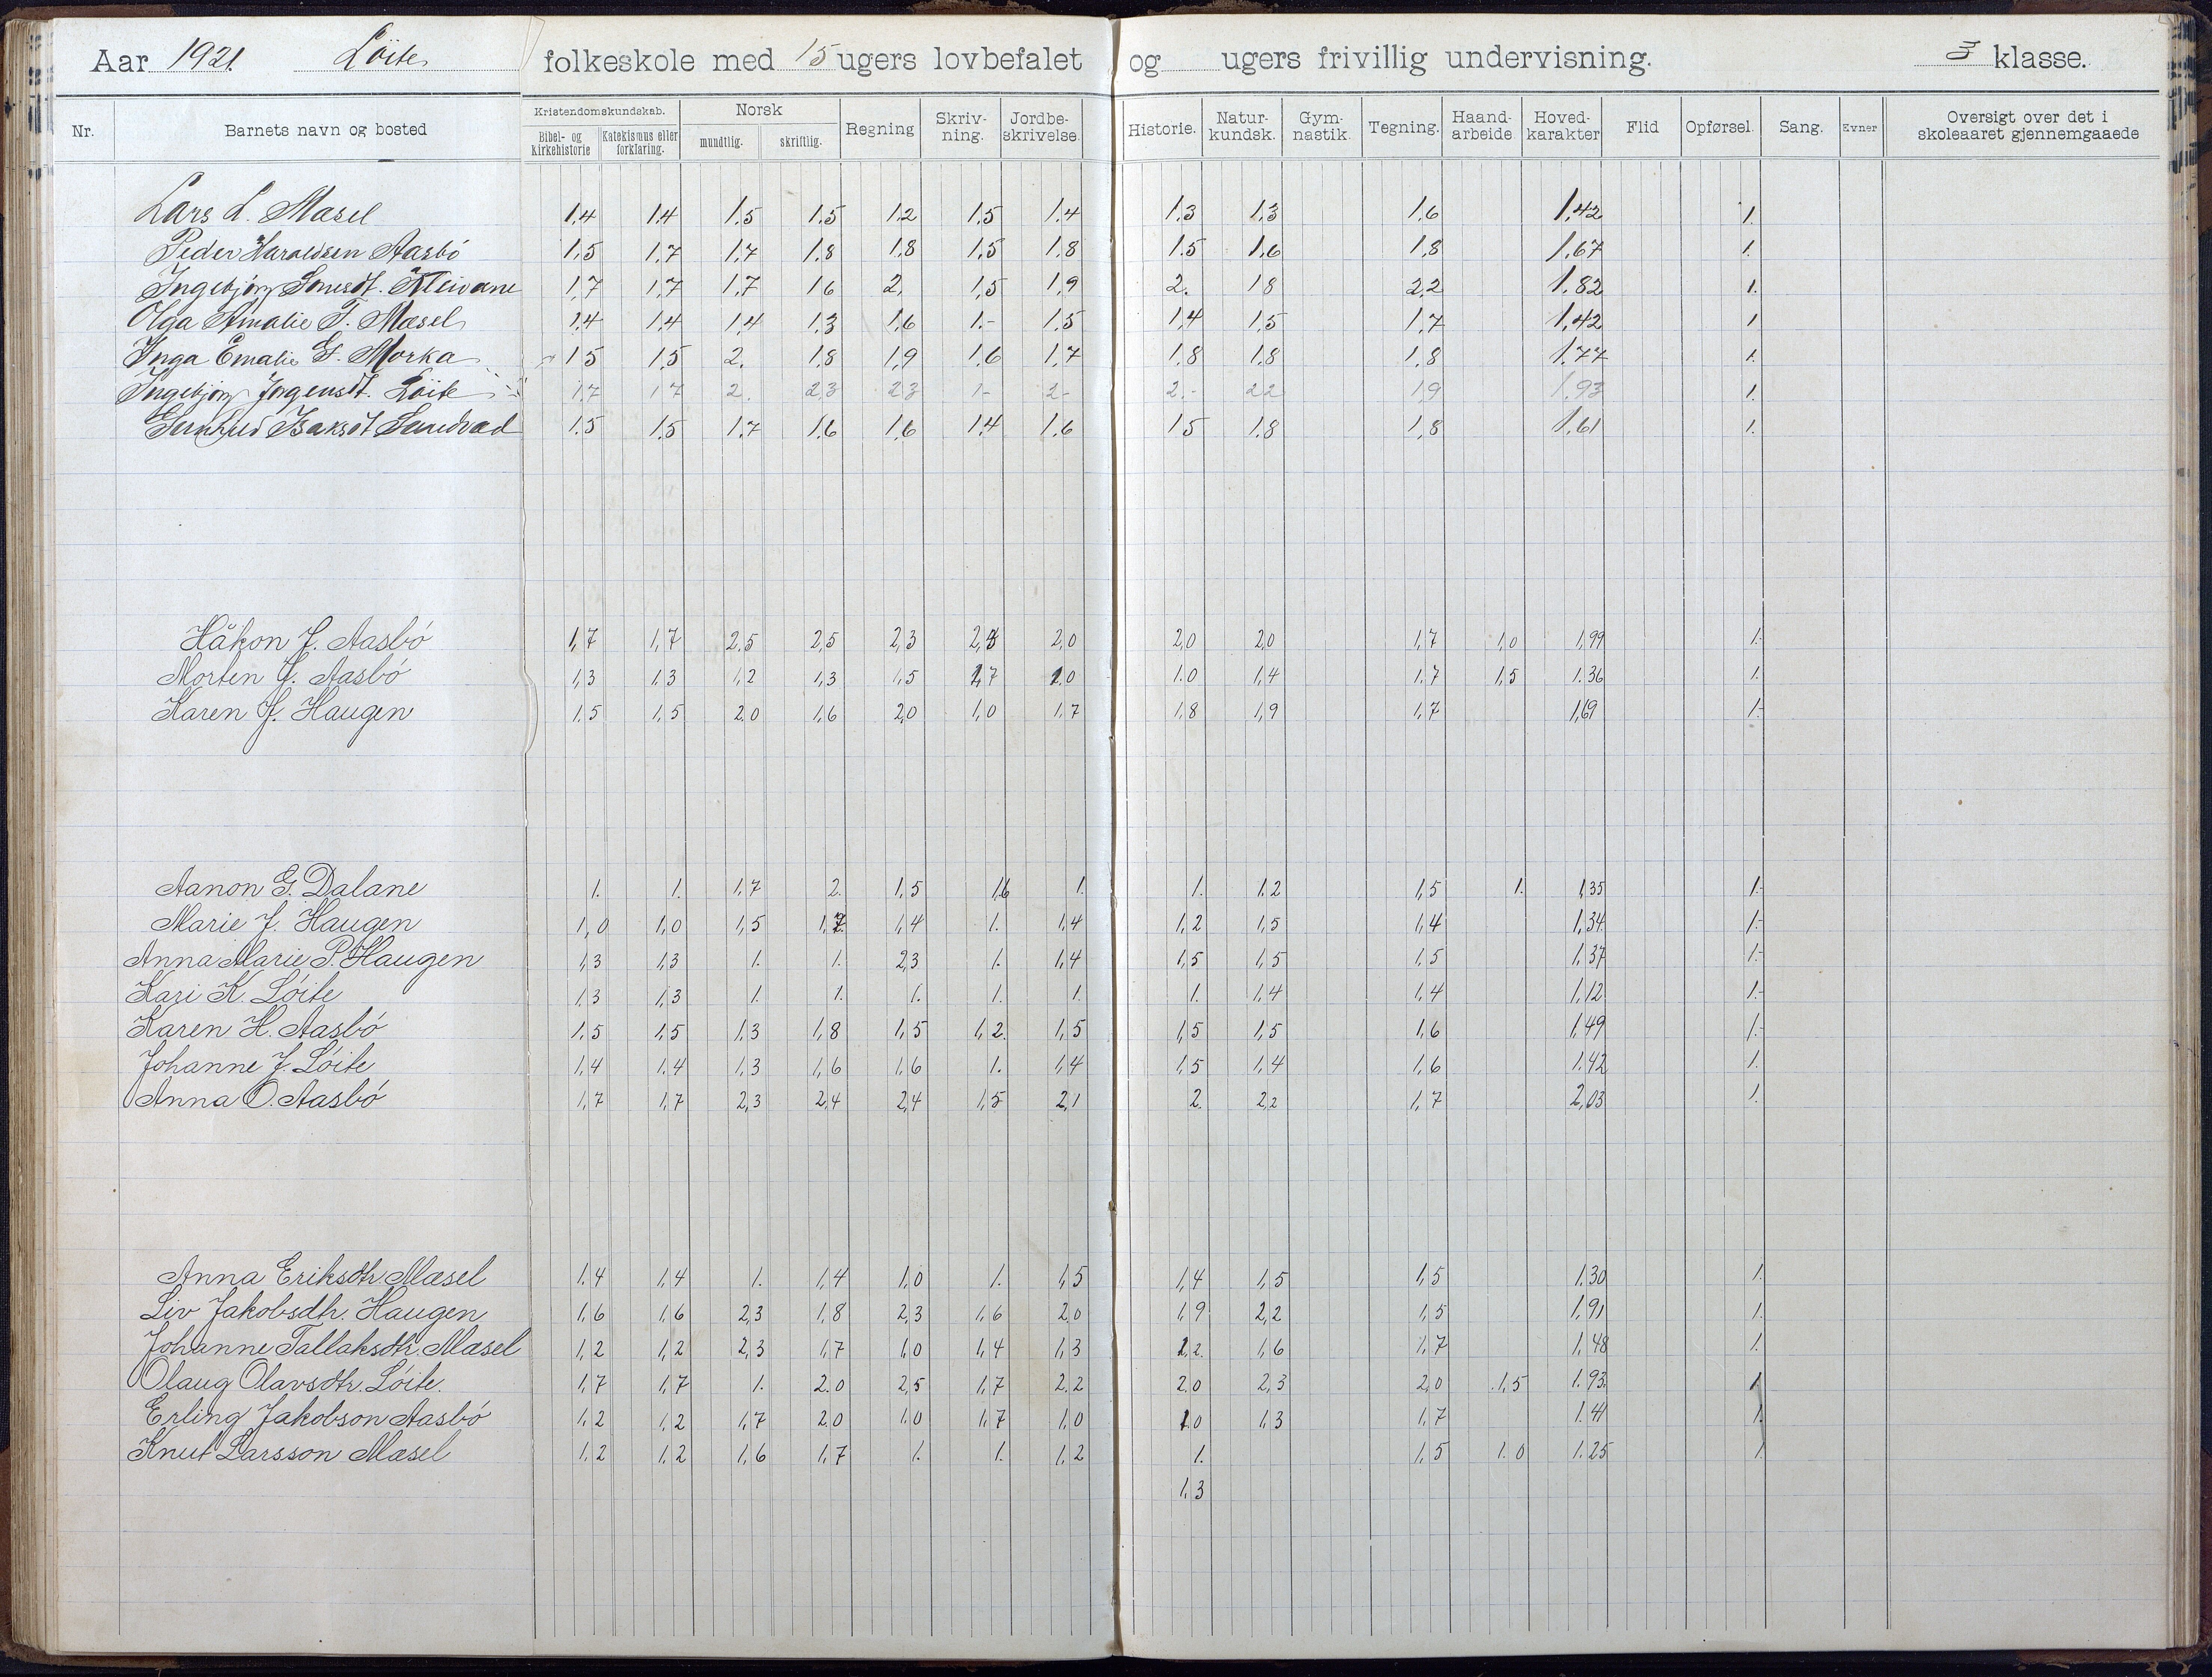 Aar 1921. Löite folkeskole med 15 ugers lovbefalet og ugers frivillig undervisning. 3 klasse.
Nr. Barnets navn og bosted Kristendomskundskab. Bibel- og Kirkehistorie Katekismus eller forklaring. Norsk mundtlig. skriftlig. Regning Skriv-ning. Jordbe-skrivelse. Historie. Natur-kundsk. Gym-nastik. Tegning. Haand-arbeide Hoved-karakter Flid Opførsel. Sang. Evner Oversigt over det i skoleaaret gjennemgaaede
Lars L. Mæsel 1.4 1.4 1.5 1.5 1.2 1.5 1.4 1.3 1.3 1.6 1.42 1.
Peder Haraldsen Aasbó 1.5 1.7 1.7 1.8 1.8 1.5 1.8 1.5 1.6 1.8 1.67 1.
Ingebjörg Kleivane 1.7 1.7 1.7 1.6 2. 1.5 1.9 2. 1.8 2.2 1.82 1.
Olga Amalie T. Mæsel 1.4 1.4 1.4 1.3 1.6 1.- 1.5 1.4 1.5 1.7 1.42 1
Inga Emalie G. Morka 1.5 1.5 2. 1.8 1.9 1.6 1.7 1.8 1.8 1.8 1.77 1.
Ingebjörg Jörgensdt. Löite 1.7 1.7 2. 2.3 2.3 1- 2- 2.- 2.2 1.9 1.93 1.
Isaksdt Sandvad 1.5 1.5 1.7 1.6 1.6 1.4 1.6 1.5 1.8 1.8 1.61 1.
Håkon J. Aasbó 1,7 1,7 2.5 2,5 2,3 2,0 2,0 2,0 1,7 1,0 1,99 1.-
Morten J. Aasbó 1,3 1,3 1,2 1,3 1,5 1,7 1.0 1.0 1,4 1.7 1,5 1.36 1.
Karen J. Haugen 1,5 1,5 2,0 1,6 2,0 1,0 1,7 1,8 1,9 1,7 1,69 1.-
Aanon G. Dalane 1. 1. 1,7 2. 1,5 1,6 1. 1. 1,2 1,5 1. 1,35 1.-
Marie J. Haugen 1,0 1,0 1,5 1,7 1,4 1. 1,4 1,2 1,5 1,4 1,34 1.-
Anna Marie P. Haugen 1,3 1,3 1. 1. 2,3 1. 1,4 1,5 1,5 1,5 1,37 1.-
Kari K. Lóite 1,3 1,3 1. 1. 1. 1. 1. 1. 1,4 1,4 1,12 1.-
Karen H. Aasbó 1,5 1,5 1,3 1,8 1,5 1,2 1,5 1,5 1,5 1,6 1,49 1.-
Johanne J. Lóite 1,4 1,4 1,3 1,6 1,6 1. 1,4 1,5 1,4 1,6 1.42 1.
Anna O. Aasbó 1,7 1,7 2,3 2,4 2,4 1,5 2,1 2. 2,2 1,7 2,03 1.
Anna Eriksdtr. Mæsel 1.4 1,4 1. 1,4 1,0 1. 1,5 1,4 1,5 1,5 1.30 1.
Liv Jakobsdtr. Haugen 1,6 1,6 2,3 1,8 2,3 1,6 2.0 1,9 2,2 1,5 1,91 1.
Johanne Tallaksdtr. Mæsel 1,2 1,2 2,3 1,7 1,0 1,4 1,3 1,2. 1,6 1,7 1,48 1.
Olaug Olavsdtr. Lóite. 1,7 1,7 1. 2.0 2,5 1,7 2.2 2.0 2,3 2,0 1,5 1.93. 1
Erling Jakobson Aasbó 1,2 1,2 1,7 2.0 1,0 1,7 1,0 1.0 1,3 1,7 1.41 1.
Knut Larsson Mæsel 1,2 1,2 1,6 1,7 1. 1. 1,2 1. 1,5 1.0 1.25 1.
1,3